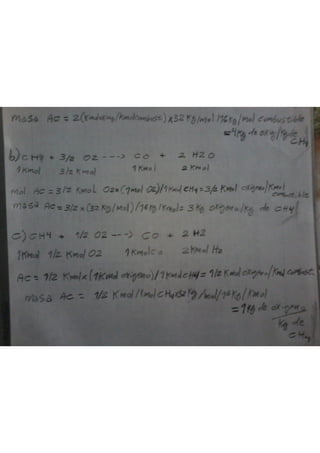 masa AC = 2(Kmoloxig/Kmolcombust) x32 Kg/mol/16Kg/mol combustible
= 4Kg de oxig/Kg de CH4
b) CH4 + 3/2 O2 ---> CO + 2 H2O
1Kmol 3/2 Kmol 1Kmol 2Kmol
mol AC = 3/2 Kmol O2x(1mol O2)/1Kmol CH4 = 3/2 Kmol oxigeno/Kmol combustible
masa AC = 3/2 x(32 Kg/mol)/16Kg/Kmol = 3 Kg oxigeno/Kg de CH4
C) CH4 + 1/2 O2 --> CO + 2 H2
1Kmol 1/2 Kmol O2 1Kmolco 2Kmol H2
AC = 1/2 Kmolx(1Kmol oxigeno)/1KmolCH4 = 1/2 Kmol oxigeno/Kmol combust.
masa AC = 1/2 Kmol/KmolCH4x32Kg/mol/16Kg/Kmol
= 1Kg de oxigeno
Kg de
CH4